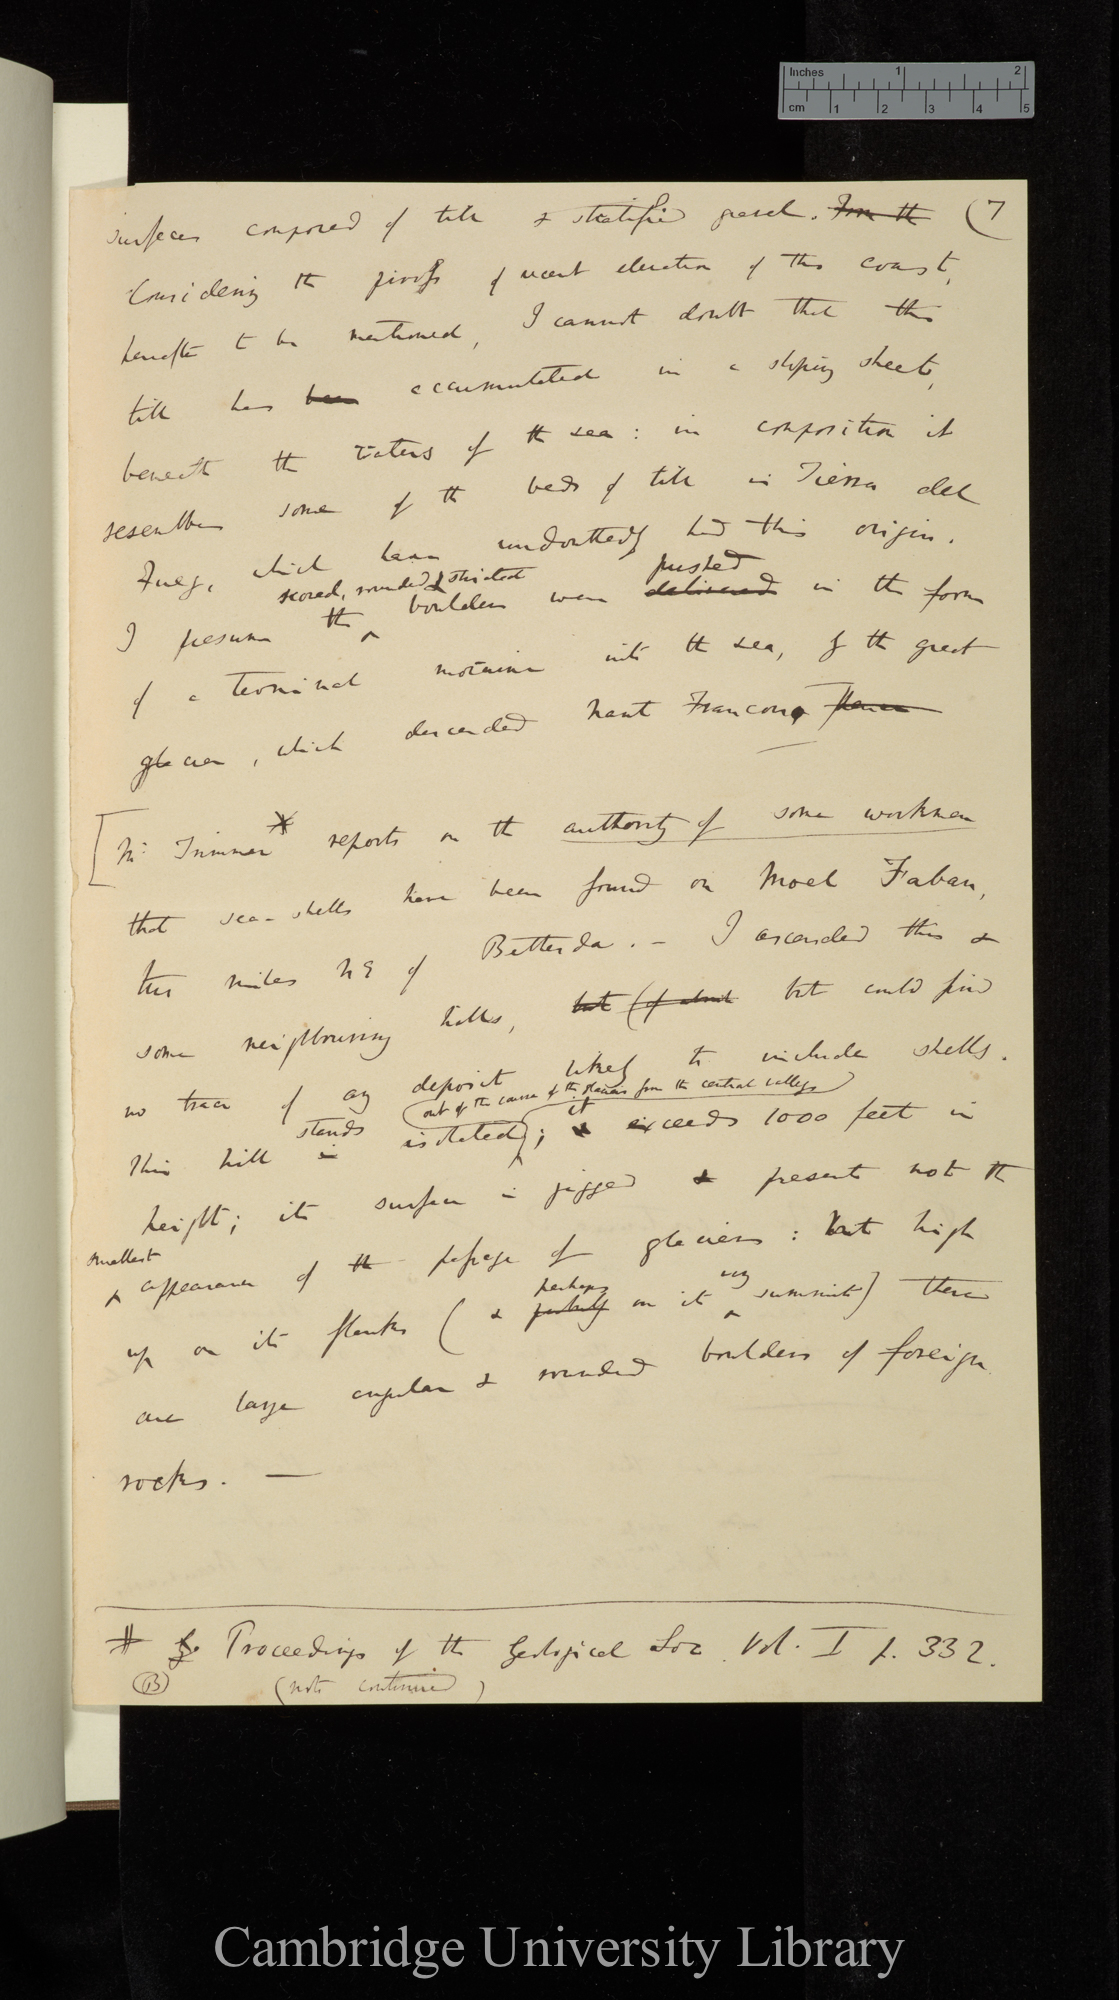 Inches 1 2
cm 1 2 3 4 5
(7
surfaces composed of till & stratified gravel. From the
Considering the proofs of recent elevation of this coast,
hereafter to be mentioned, I cannot doubt that this
till has been accumulated in a sloping sheet,
beneath the waters of the sea: in composition it
resembles some of the beds of till in Tierra del
Fuego, which have undoubtedly had this origin.
scored, rounded & striated pushed
I presume the ^ boulders were delivered in the form
of a terminal moraine into the sea, by the great
glacier, which descended Nant Francon,
[Mr. Trimmer* reports on the authority of some workmen
that sea-shells have been found on Moel Faban,
two miles NE of Bethesda. — I ascended this &
some neighbouring hills, but (of about but could find
no trace of any deposit likely to include shells.
(out of the course of the glaciers from the central valleys)
stands it
This hill is isolated; & exceeds 1000 feet in
height; its surface is jagged & presents not the
smallest
^ appearance of the passage of glaciers: but high
perhaps very
up on its flanks (& probably on its ^ summit) there
are large angular & rounded boulders of foreign
rocks. —
Proceedings of the Geological Soc. Vol. I p. 332.
(B) (note continued)
Cambridge University Library